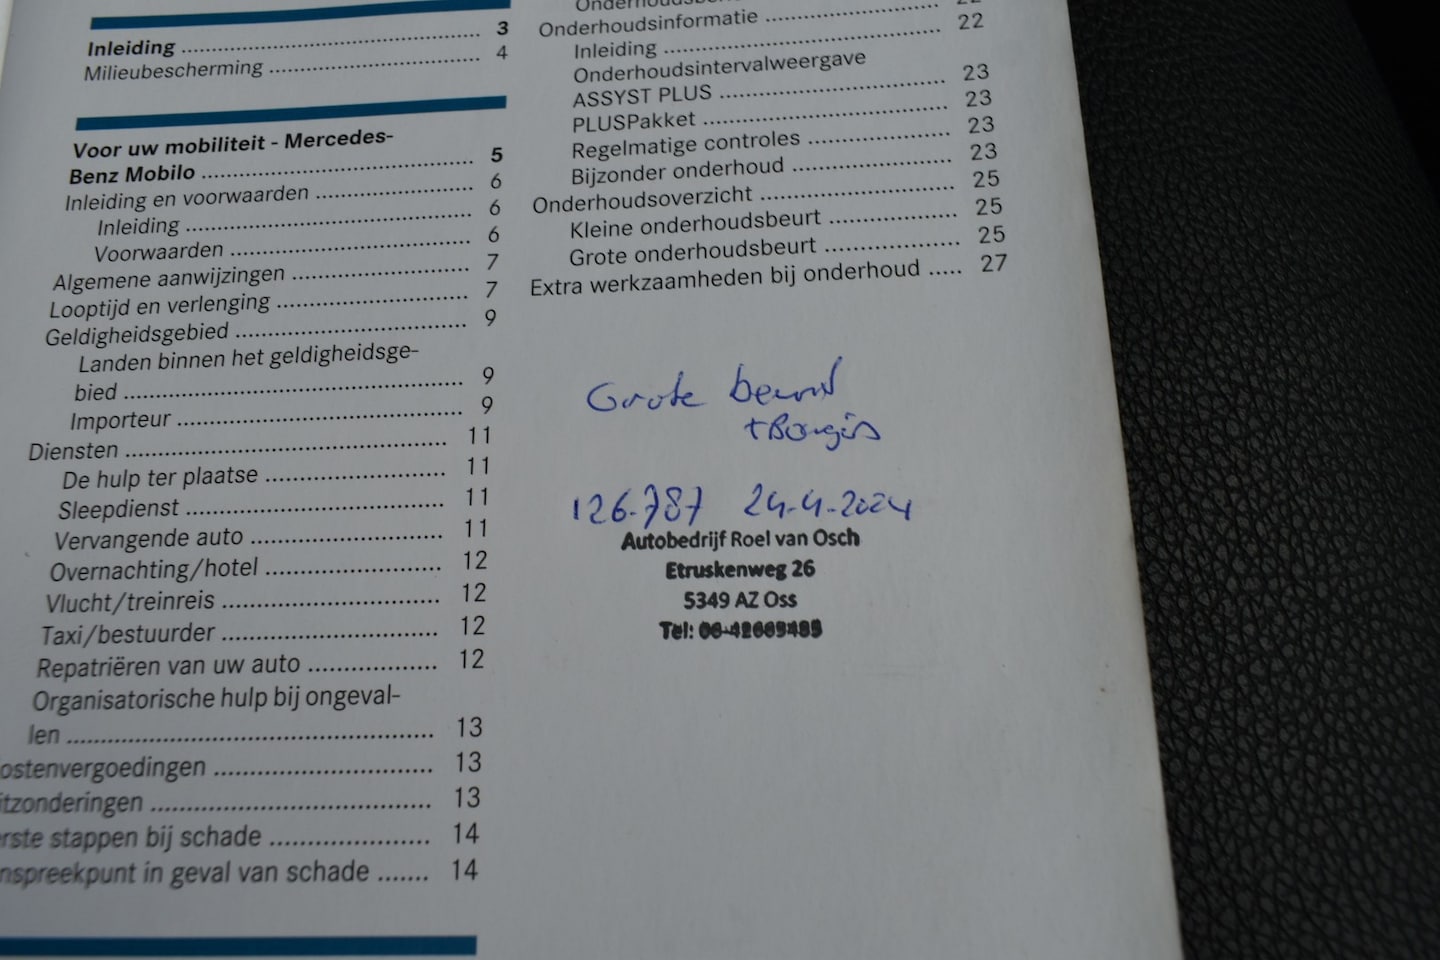 Inleiding ........ 3
Milieubescherming ........ 4
Voor uw mobiliteit - Mercedes-
Benz Mobilo ........ 5
Inleiding en voorwaarden ........ 6
Inleiding ........ 6
Voorwaarden ........ 6
Algemene aanwijzingen ........ 7
Looptijd en verlenging ........ 7
Geldigheidsgebied ........ 9
Landen binnen het geldigheidsge-
bied ........ 9
Importeur ........ 9
Diensten ........ 11
De hulp ter plaatse ........ 11
Sleepdienst ........ 11
Vervangende auto ........ 11
Overnachting/hotel ........ 12
Vlucht/treinreis ........ 12
Taxi/bestuurder ........ 12
Repatriëren van uw auto ........ 12
Organisatorische hulp bij ongeval-
len ........ 13
ostenvergoedingen ........ 13
itzonderingen ........ 13
rste stappen bij schade ........ 14
nspreekpunt in geval van schade ....... 14
Onderhoudsinformatie ........ 22
Inleiding ........ 22
Onderhoudsintervalweergave
ASSYST PLUS ........ 23
PLUSPakket ........ 23
Regelmatige controles ........ 23
Bijzonder onderhoud ........ 23
Onderhoudsoverzicht ........ 25
Kleine onderhoudsbeurt ........ 25
Grote onderhoudsbeurt ........ 25
Extra werkzaamheden bij onderhoud ..... 27
Grote beurt
126.787 24-4-2024
Autobedrijf Roel van Osch
Etruskenweg 26
5349 AZ Oss
Tel: